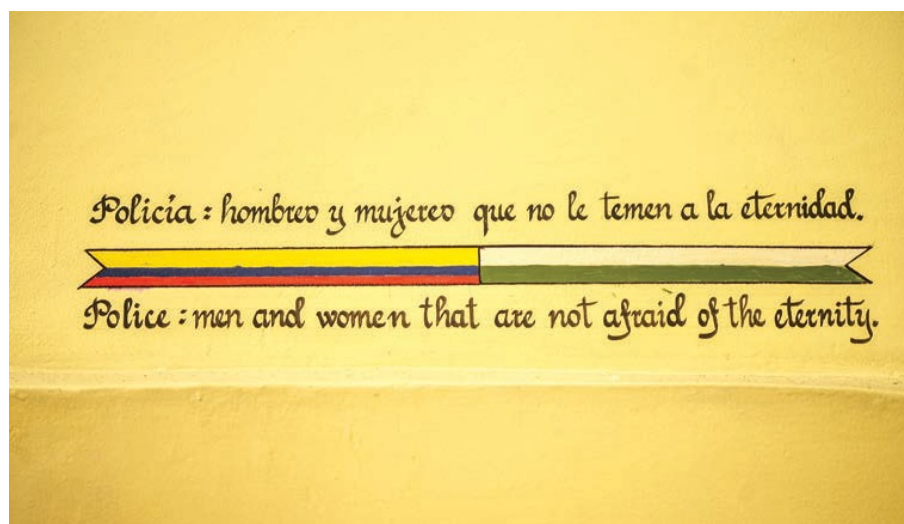 Policía : hombres y mujeres que no le temen a la eternidad.
Police : men and women that are not afraid of the eternity.